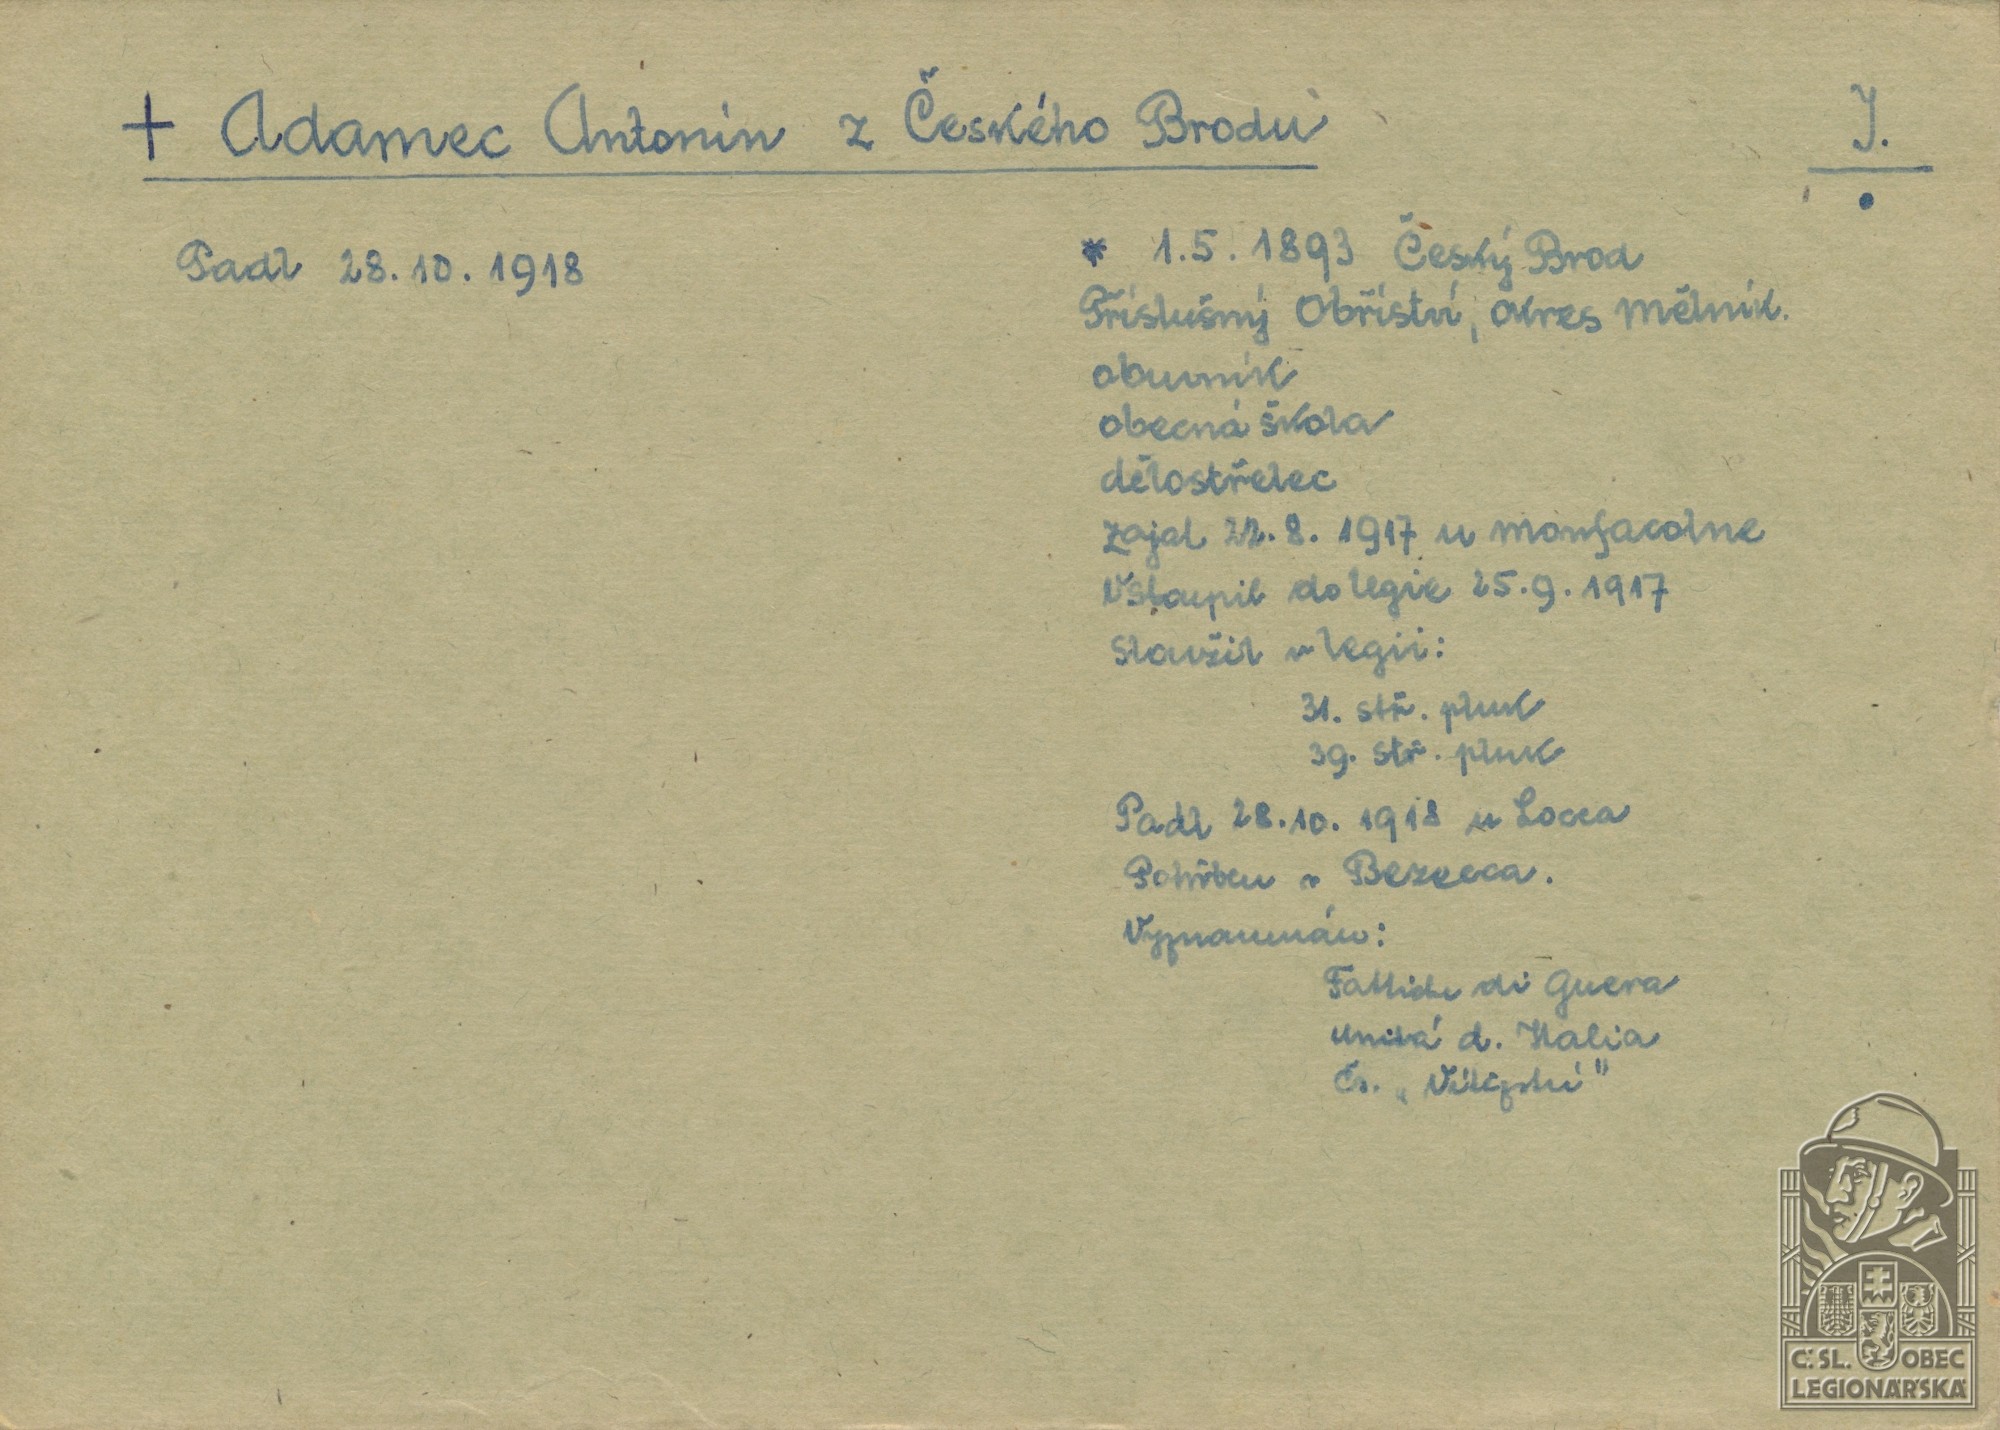 + Adamec Antonín z Českého Brodu
I.
Padl 28.10.1918
* 1.5.1893 Český Brod
Příslušný Obříství, okres Mělník.
obuvník
obecná škola
dělostřelec
Zajat 22.8.1917 u
Vstoupil do legie 25.9.1917
Sloužil v legii:
31. stř. pluk
39. stř. pluk
Padl 28.10.1918 u Locca
Pohřben v Bezecca.
Vyznamenán:
di Guera
Unitá d. Italia
Čs. „
Č. SL. OBEC
LEGIONÁŘSKÁ